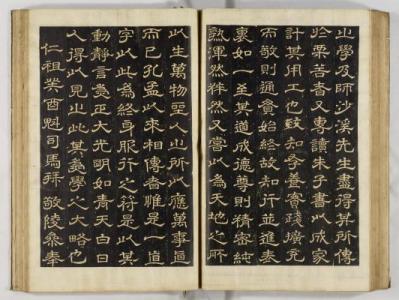 之學及師沙溪先生盡得其所傳
於栗谷者又專讀朱子書以成家
計其用工也致知存養實踐擴充
而敬則通貫始終故知行並進表
裏如一至其道成德尊則精密純
熟渾然粹然又嘗以為天地之所
以生萬物聖人之所以應萬事直
而已孔孟以來相傳者惟是一直
字以此為終身服行之符是以其
動靜云為正大光明如青天白日
人得以見之此其為學之大略也
仁祖癸酉魁司馬拜 敬陵參奉